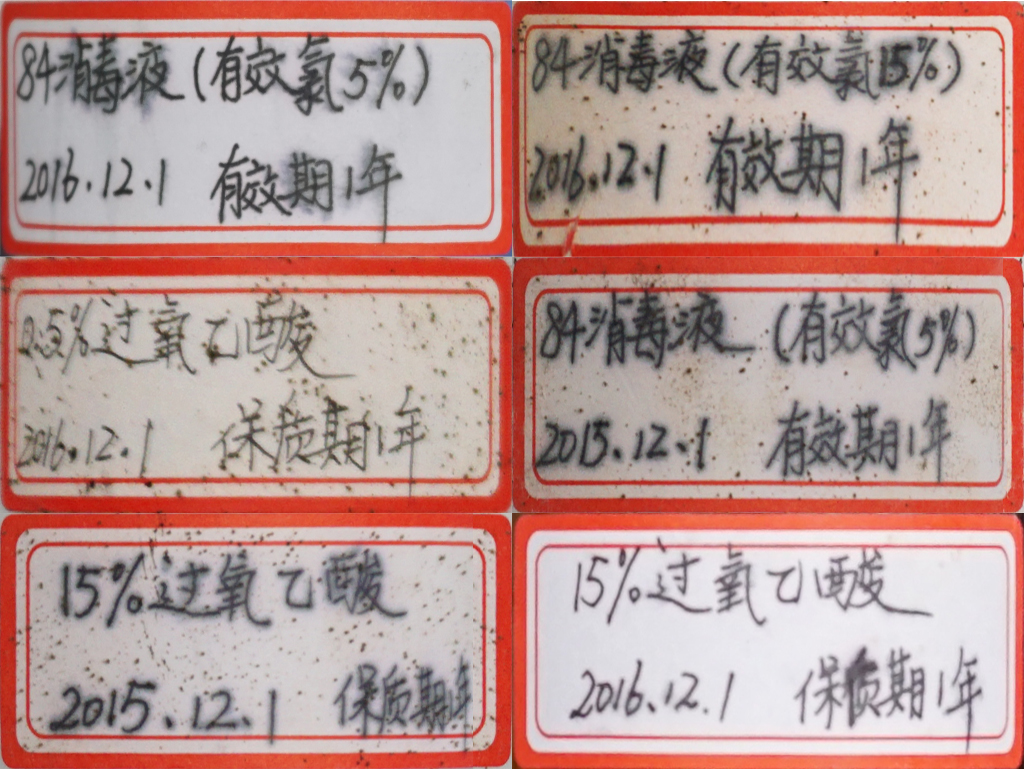 84消毒液(有效氯5%)
2016.12.1 有效期1年
84消毒液(有效氯15%)
2016.12.1 有效期1年
过氧乙酸
2016.12.1 保质期1年
84消毒液 (有效氯5%)
2015.12.1 有效期1年
15%过氧乙酸
2015.12.1 保质期1年
15%过氧乙酸
2016.12.1 保质期1年